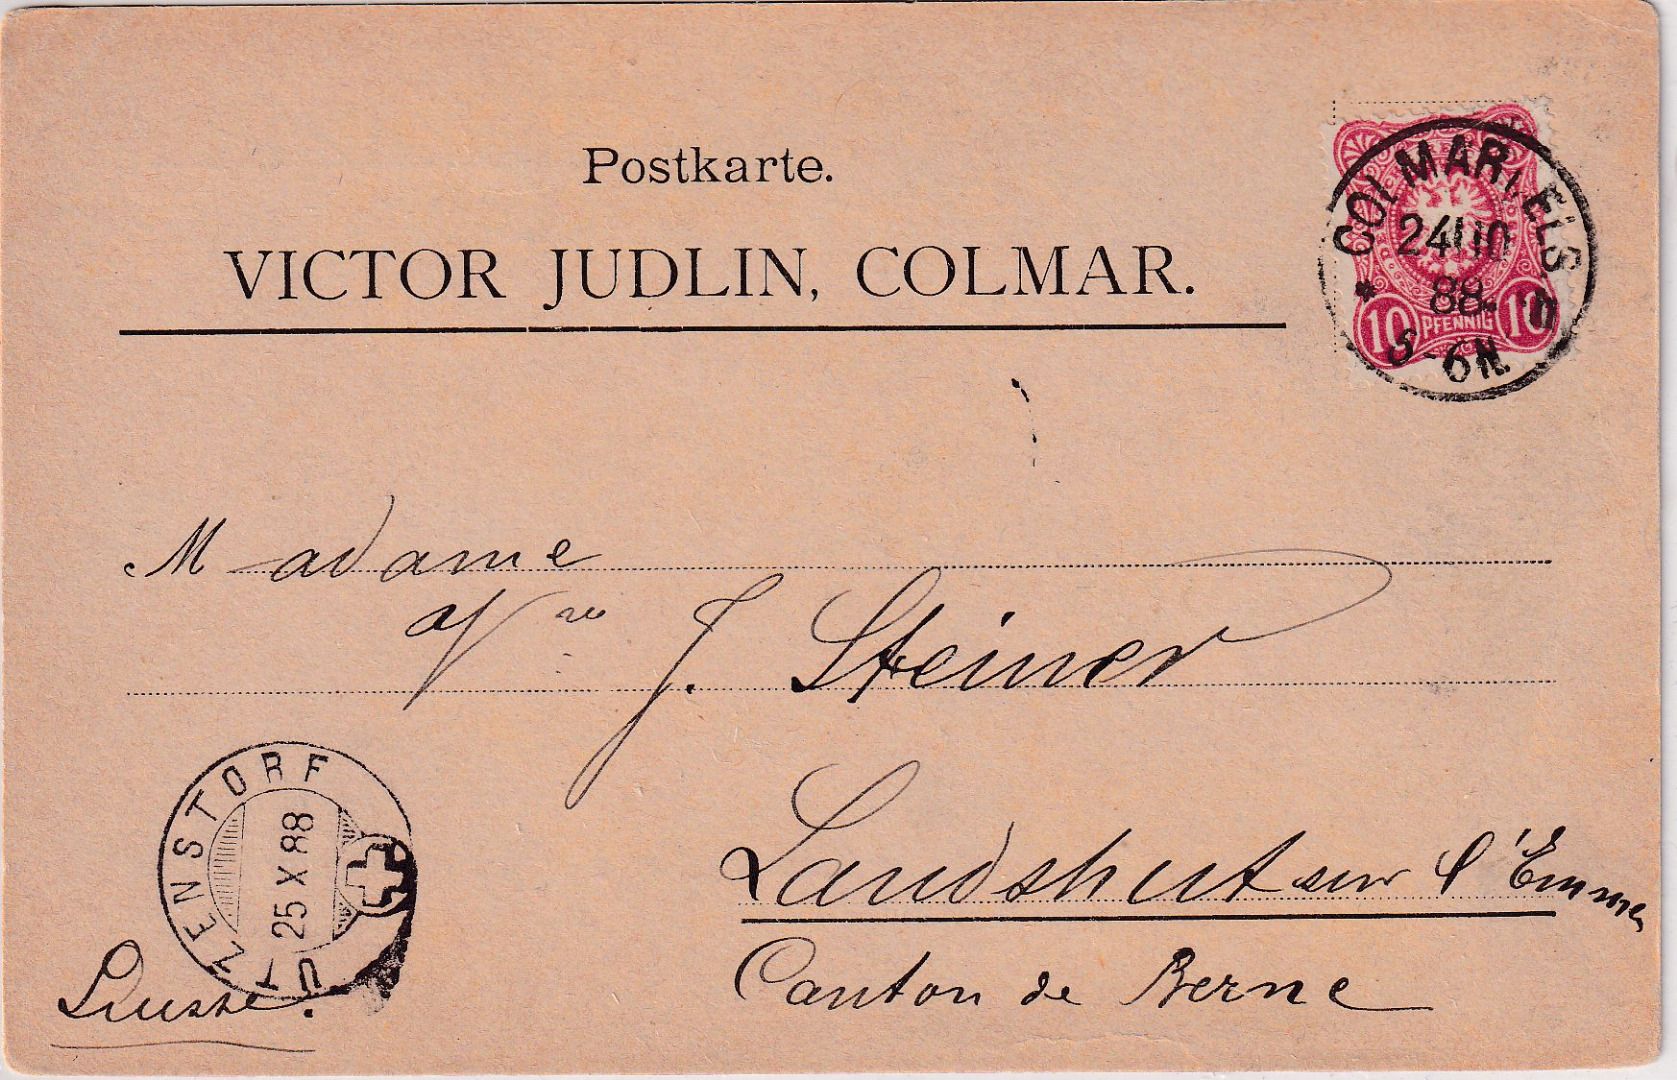 Postkarte.
VICTOR JUDLIN, COLMAR.
COLMAR i. ELS.
24 10
88.
5-6N.
10 PFENNIG 10
Madame
Vve J. Steiner
Landshut sur l'Emme
Canton de Berne
UTZENSTORF
25 X 88
Suisse.